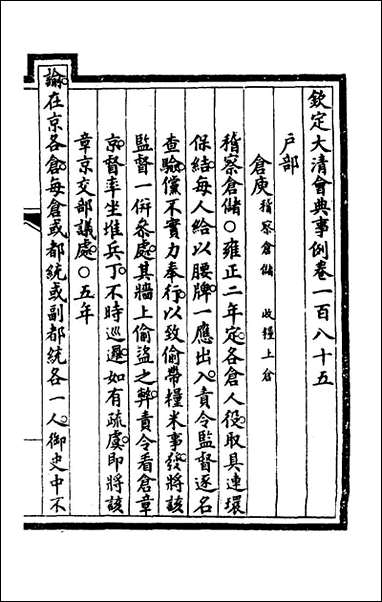 欽定大清會典事例卷一百八十五
戶部
倉庾稽察倉儲 收糧上倉
稽察倉儲○雍正二年定各倉人役取具連環
保結每人給以腰牌一應出入責令監督逐名
查驗儻不實力奉行以致偷帶糧米事發將該
監督一併叅處其牆上偷盜之弊責令看倉章
京督率坐堆兵丁不時巡邏如有疏虞即將該
章京交部議處○五年
諭在京各倉每倉或都統或副都統各一人御史中不